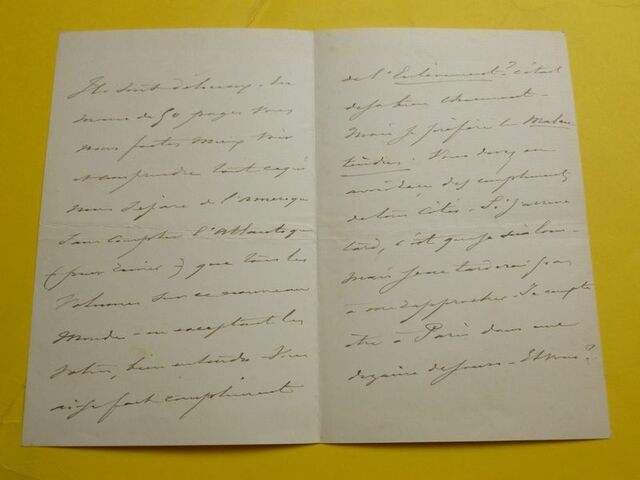 Ils sont délicieux. En
moins de 50 pages vous
nous faites mieux voir
comprendre tout ce qui
nous sépare de l'Amérique
sans compter l'Atlantique
(pour rimer) que tous les
volumes sur ce nouveau
monde — en exceptant les
vôtres, bien entendu. Vous
ai-je fait compliment
de l'Enlèvement? C'était
déjà bien charmant —
Mais je préfère les Malen-
tendus. Vous devez en
avoir déjà des compliments
de tous côtés — Si j'arrive
tard, c'est que je suis loin —
Mais je ne tarderai pas
à me rapprocher. Je compte
être à Paris dans une
dizaine de jours — Et vous?